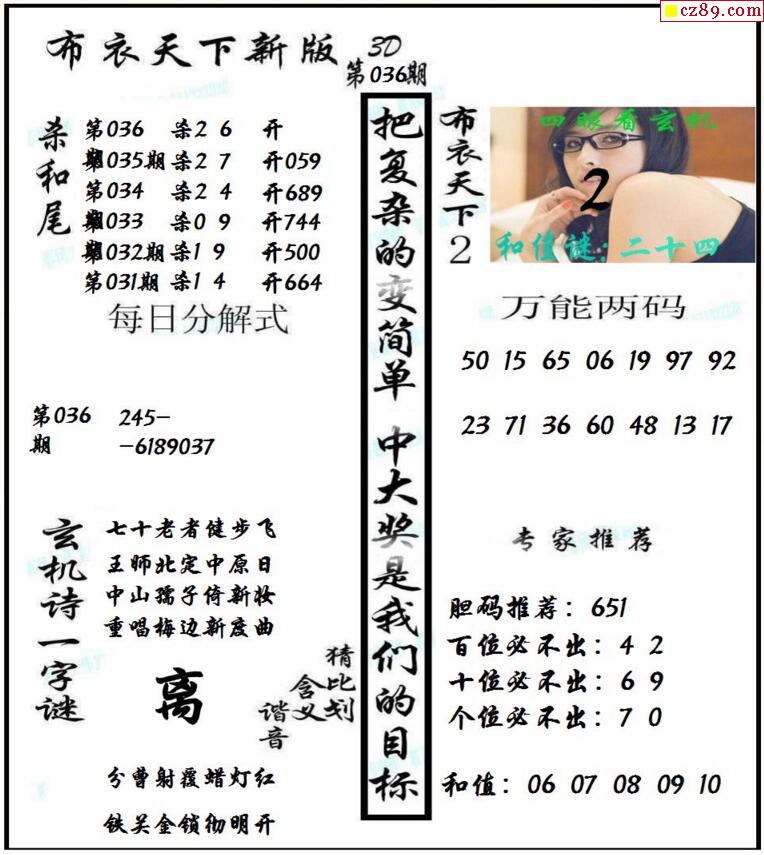 cz89.com
布衣天下新版 3D
第036期
杀和尾
第036期 杀2 6 开
第035期 杀2 7 开059
第034期 杀2 4 开689
第033期 杀0 9 开744
第032期 杀1 9 开500
第031期 杀1 4 开664
每日分解式
第036期 245-
-6189037
玄机诗一字谜
七十老者健步飞
王师北定中原日
中山孺子倚新妆
重唱梅边新度曲
离
猜比划
含义
谐音
分曹射覆蜡灯红
铁关金锁彻明开
把复杂的变简单 中大奖是我们的目标
布衣天下2
四眼看玄机
2
和值谜:二十四
万能两码
50 15 65 06 19 97 92
23 71 36 60 48 13 17
专家推荐
胆码推荐:651
百位必不出:4 2
十位必不出:6 9
个位必不出:7 0
和值:06 07 08 09 10